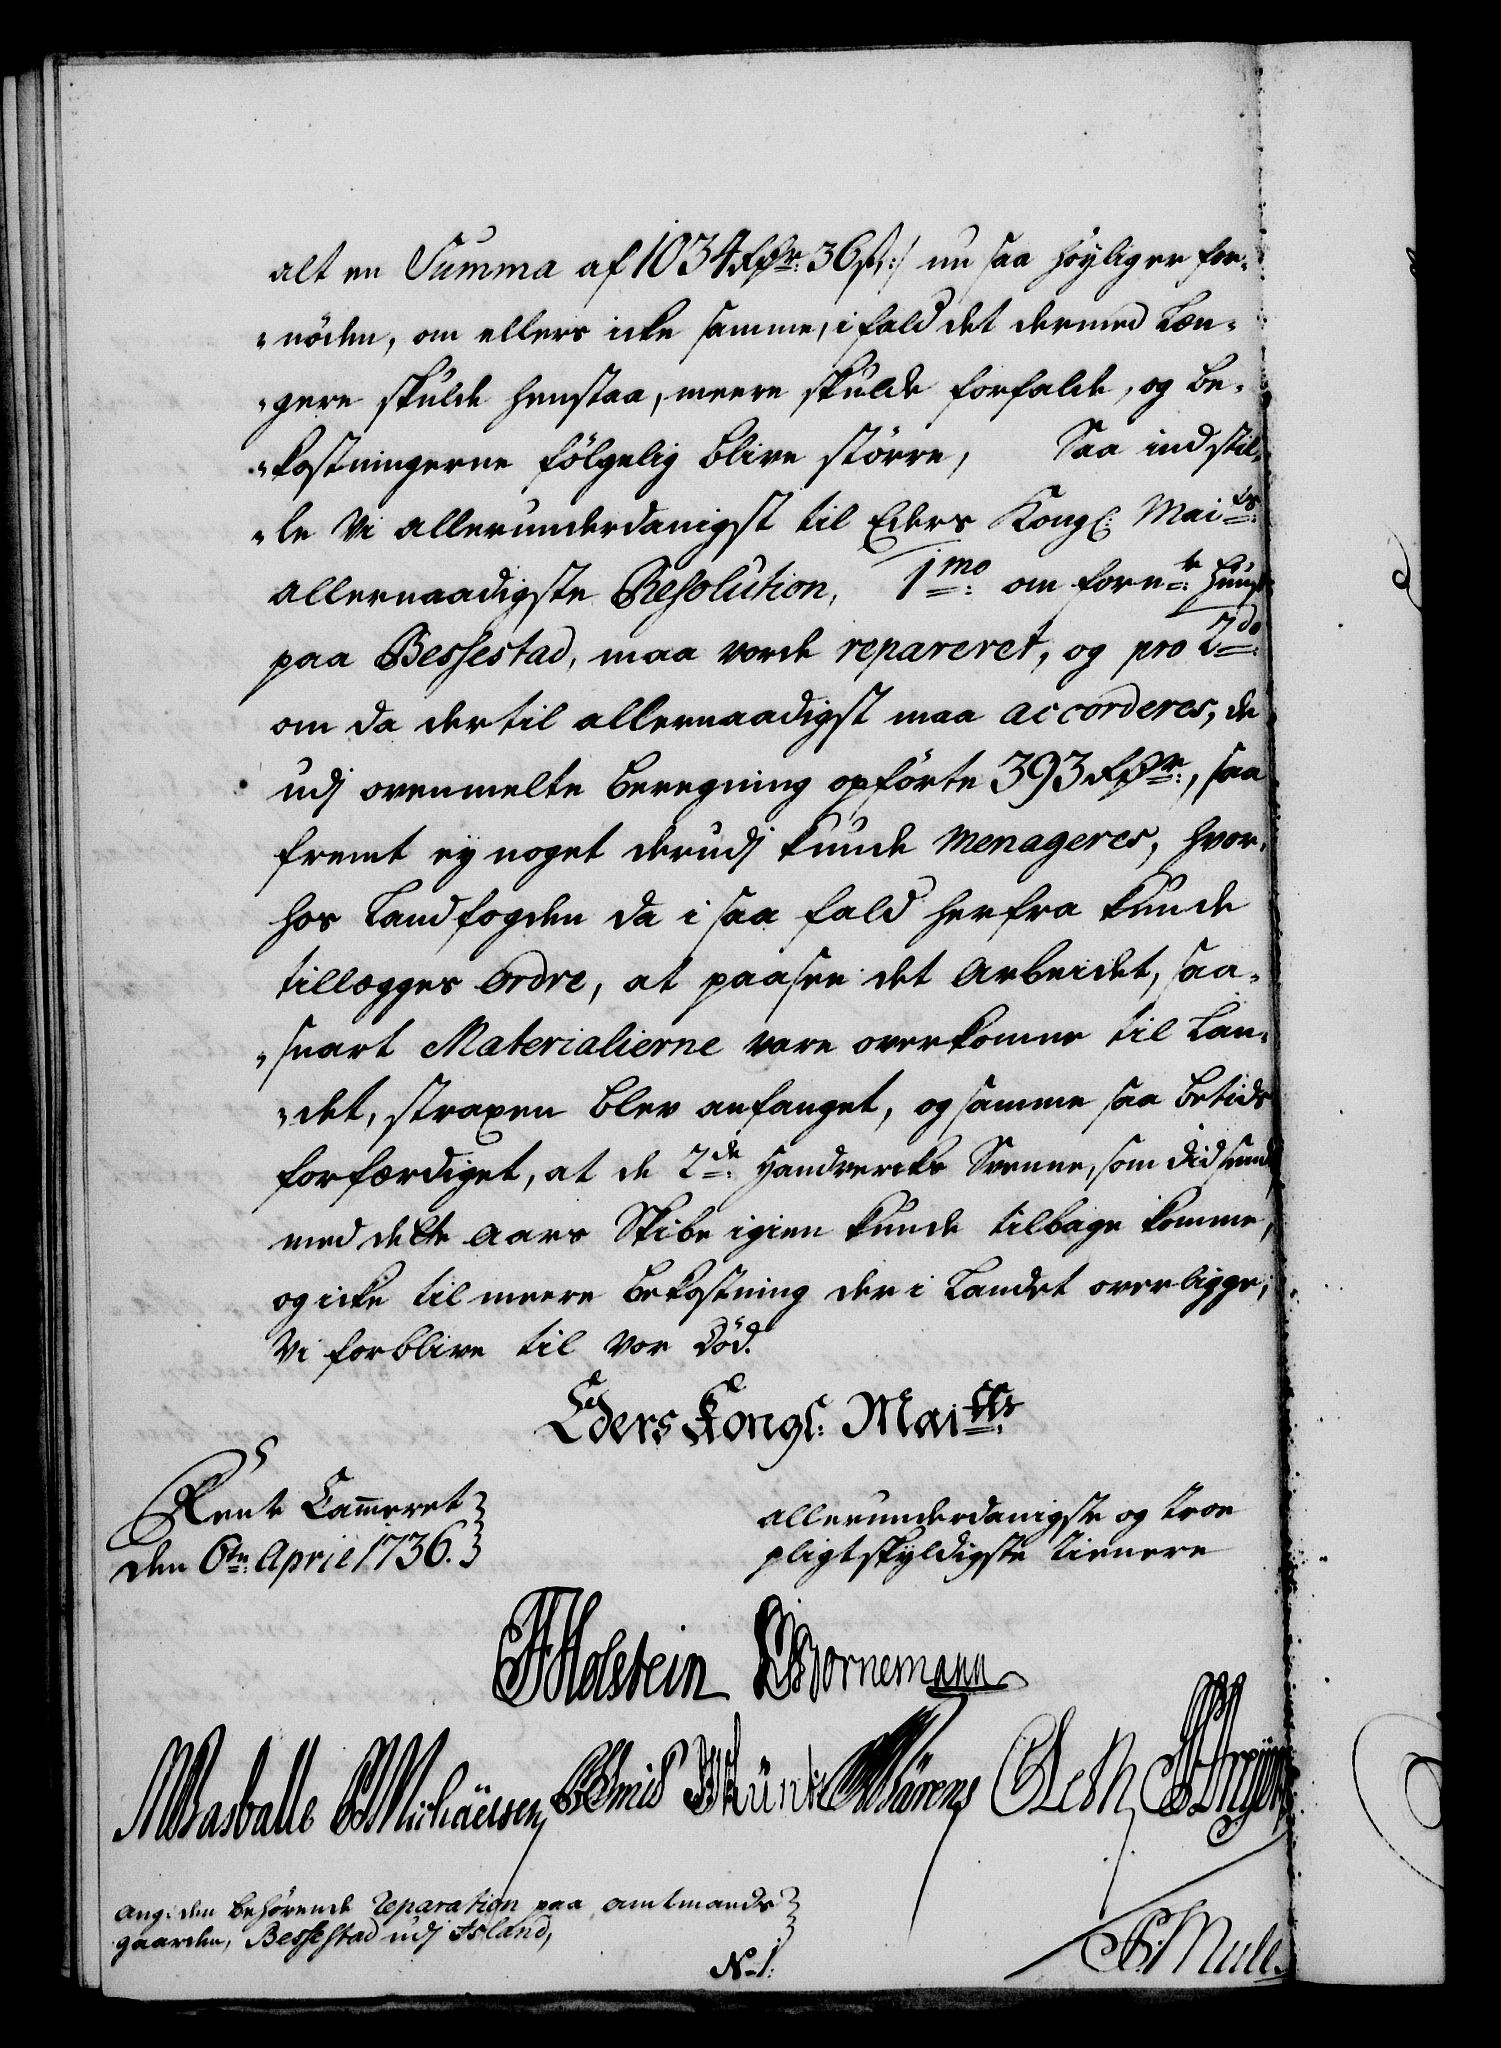 alt en Summa af 1034 Rdr: 36 s:/ nu saa höyligen for-
-nöden, om ellers icke samme, ifald det dermed Læn-
-gere skulde henstaa, meere skulde forfalde, og be-
-kostningerne fölgelig blive större, Saa indstil-
-le Vi allerunderdanigst til Eders Kongl: Maits
allernaadigste Resolution, 1mo: om fornte: Huuse
paa Bessestad, maa vorde repareret, og pro 2do:
om da dertil allernaadigst maa accorderes, de
udj ovenmelte beregning opförte 393 Rdr:, saa
fremt ey noget derudj kunde menageres, hvor-
hos Landfogden da i saa fald herfra kunde
tillægges ordre, at paasee det Arbeidet, saa-
-snart Materialierne vare overkomne til Lan-
-det, straxen blev anfanget, og samme saa betids
forfærdiget, at de 2de: Handvercks Svenne, som did sendes
med dette aars Skibe igien kunde tilbage komme,
og icke til meere bekostning der i Landet overligge;
Vi forblive til vor Död.
Eders Kongl: Maitts
Rente Cammeret
den 6te: April 1736.
allerunderdanigste og troe
pligtskyldigste tienere
Holstein Bornemann
Basballe Michäelsen Sörens
Mule
ang: den behövende reparation paa amtmands
gaarden, Bessestad udj Island,
N-1: